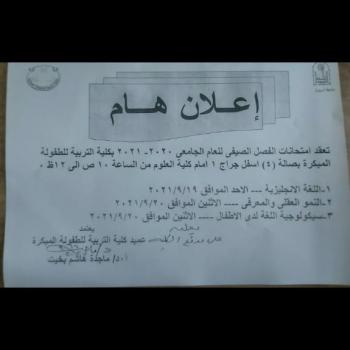 إعلان هام
تعقد امتحانات الفصل الصيفى للعام الجامعى ٢٠٢٠-٢٠٢١ بكلية التربية للطفولة
المبكرة بصالة (٤) اسفل جراج ١ امام كلية العلوم من الساعة ١٠ ص الى ١٢ ظ ٠
١-اللغة الانجليزية --- الاحد الموافق ٢٠٢١/٩/١٩
٢-النمو العقلى والمعرفى ---- الاثنين الموافق ٢٠٢١/٩/٢٠
٣-سيكولوجية اللغة لدى الاطفال ---- الاثنين الموافق ٢٠٢١/٩/٢٠
يعتمد
عميد كلية التربية للطفولة المبكرة
أ٠د/ ماجدة هاشم بخيت